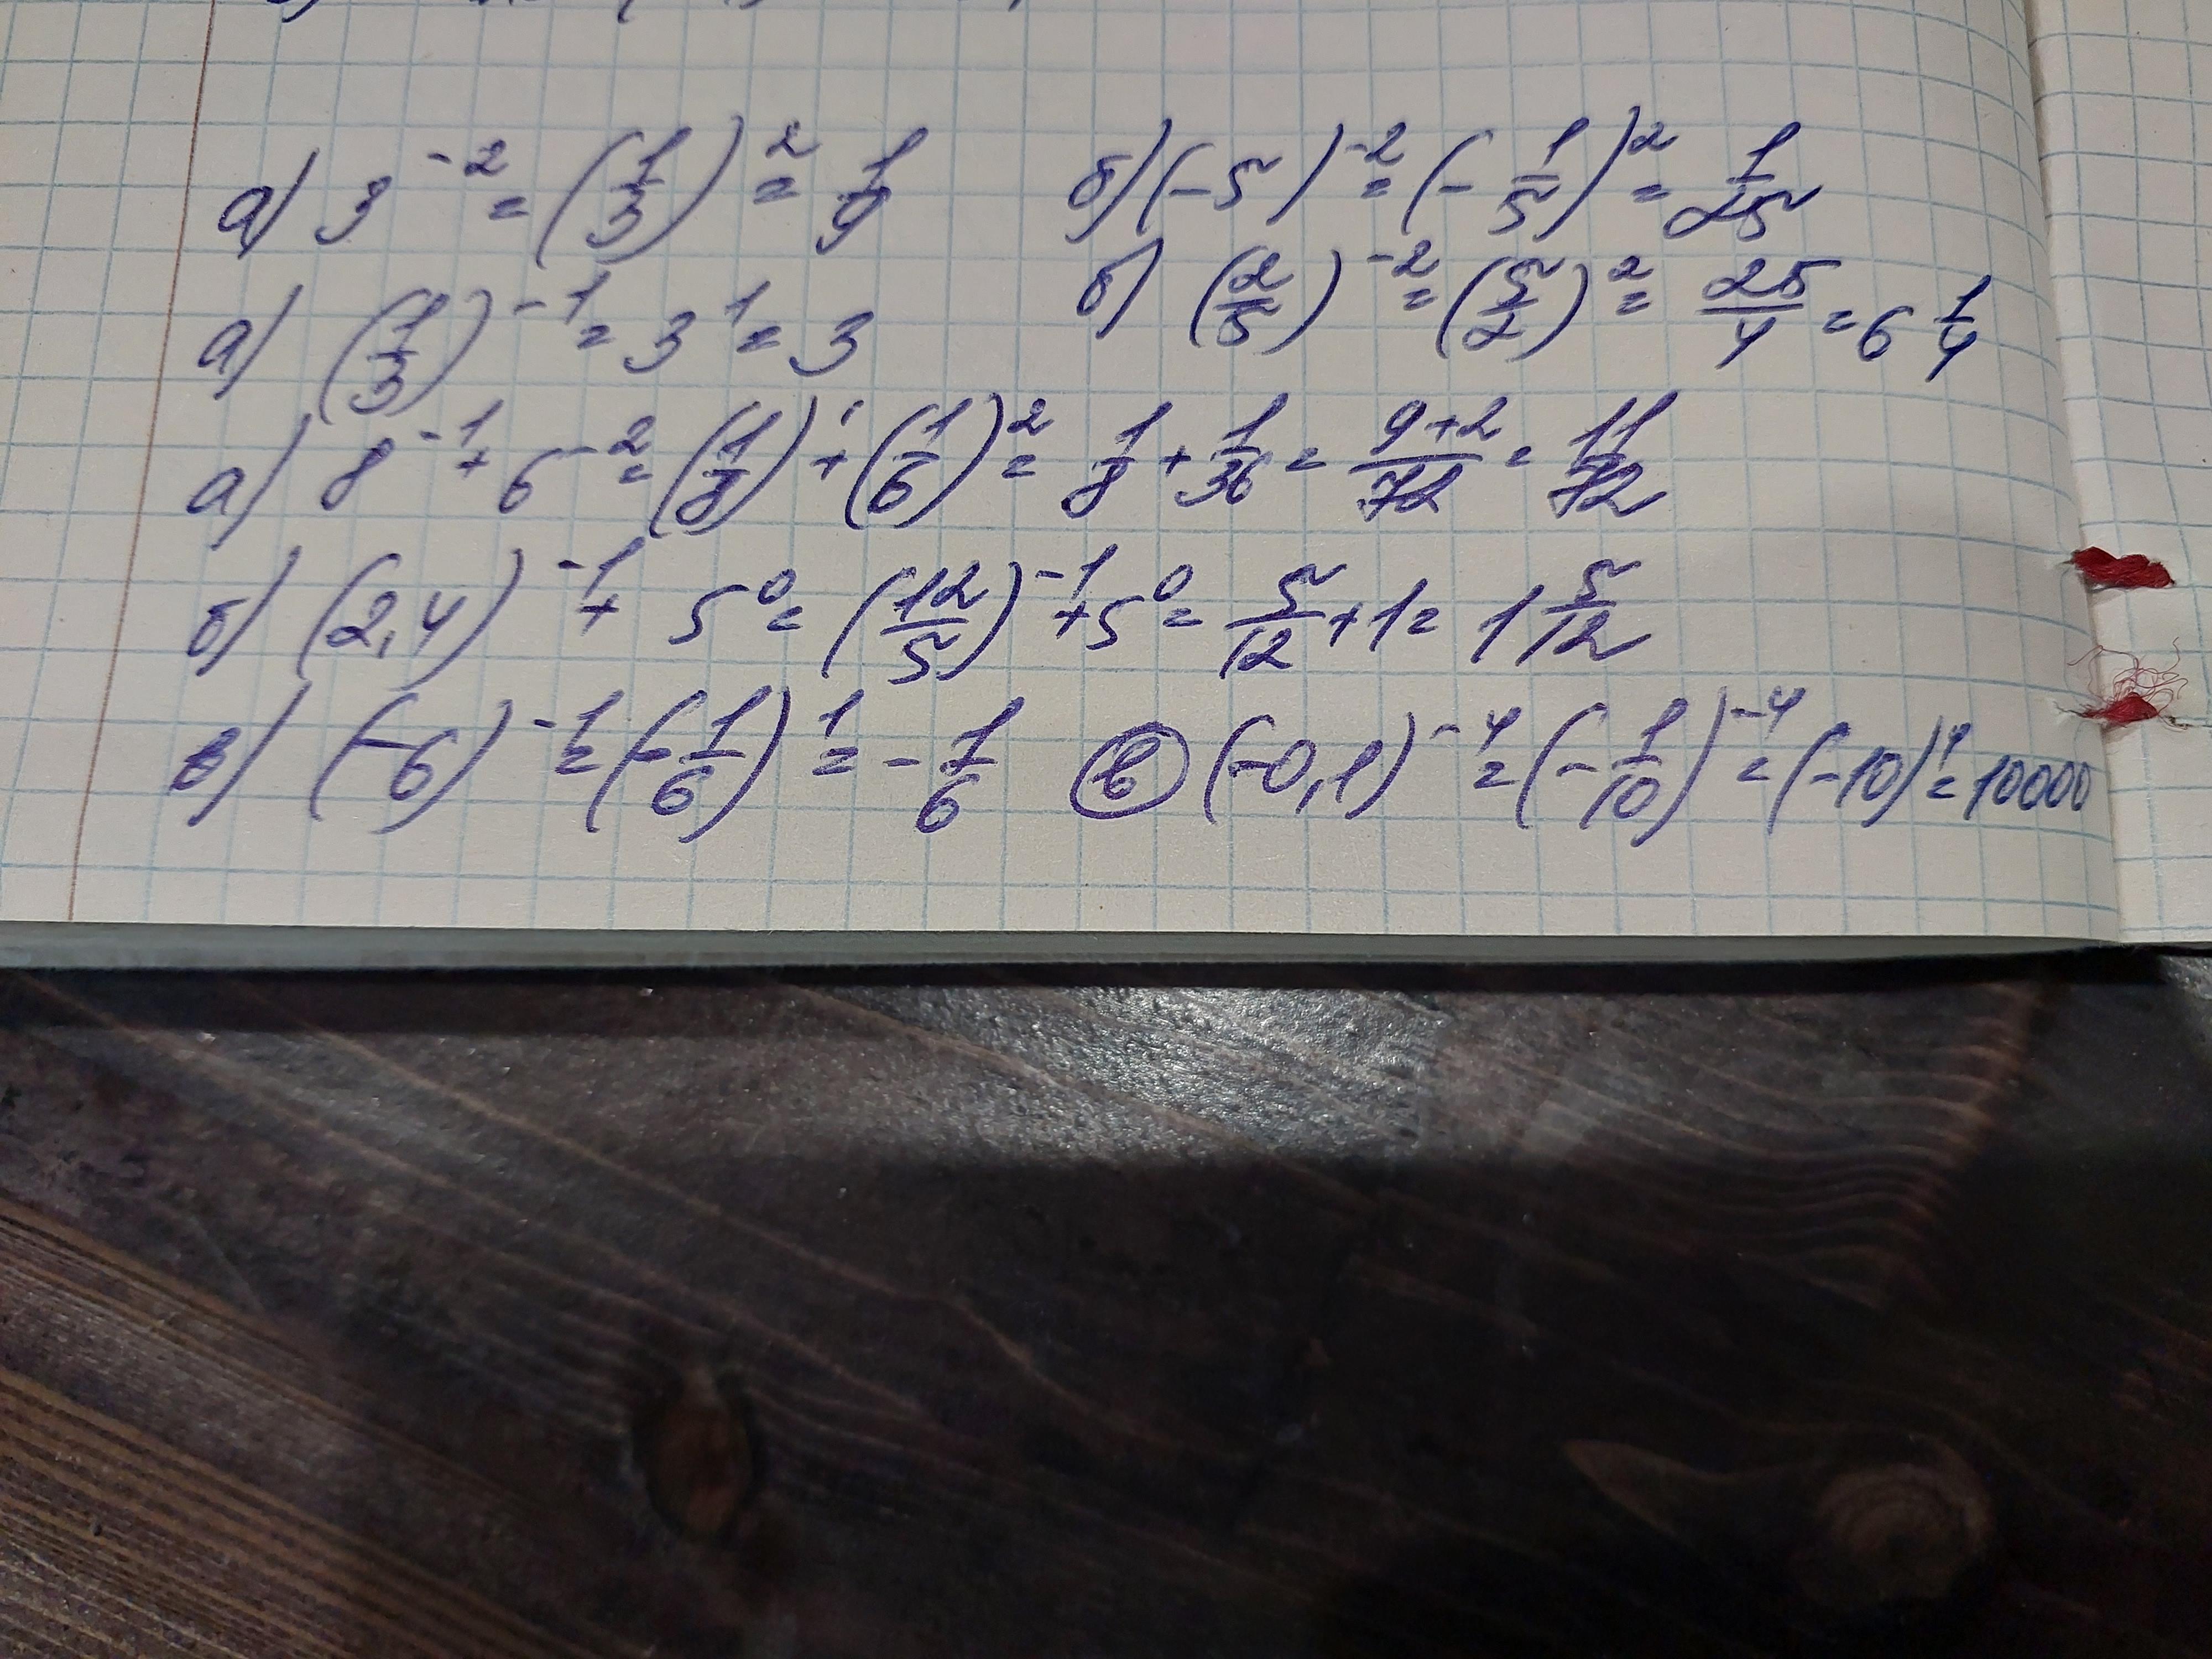 а) 3^{-2} = (1/3)^2 = 1/9 б) (-5)^{-2} = (-1/5)^2 = 1/25
а) (1/3)^{-1} = 3^1 = 3 б) (2/5)^{-2} = (5/2)^2 = 25/4 = 6 1/4
а) 8^{-1} + 6^{-2} = (1/8)^1 + (1/6)^2 = 1/8 + 1/36 = (9+2)/72 = 11/72
б) (2,4)^{-1} + 5^0 = (12/5)^{-1} + 5^0 = 5/12 + 1 = 1 5/12
в) (-6)^{-1} = (-1/6)^1 = -1/6 в (-0,1)^{-4} = (-1/10)^{-4} = (-10)^4 = 10000